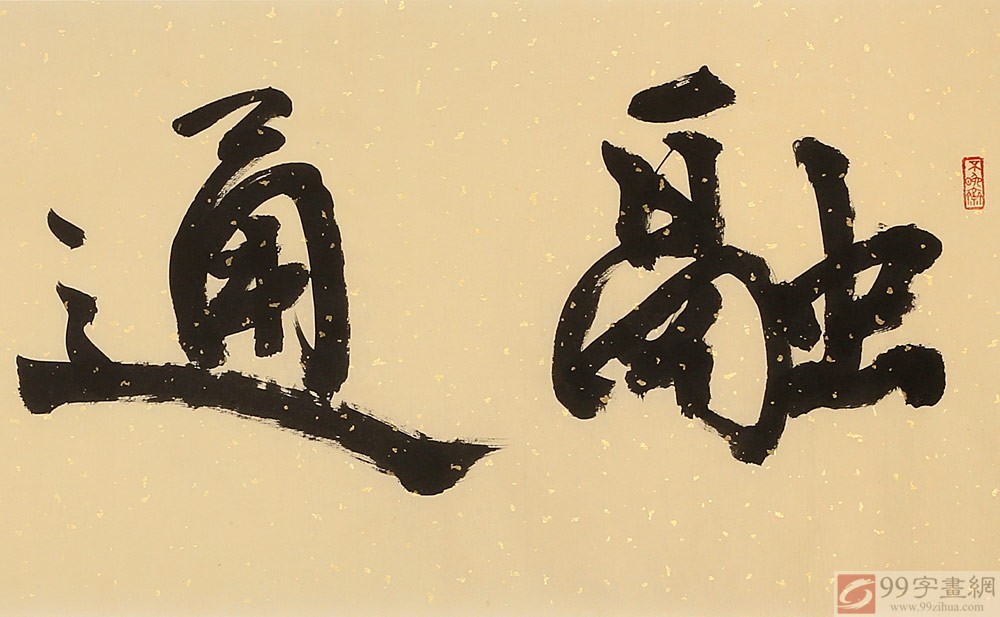 融通
99字畫網
www.99zihua.com